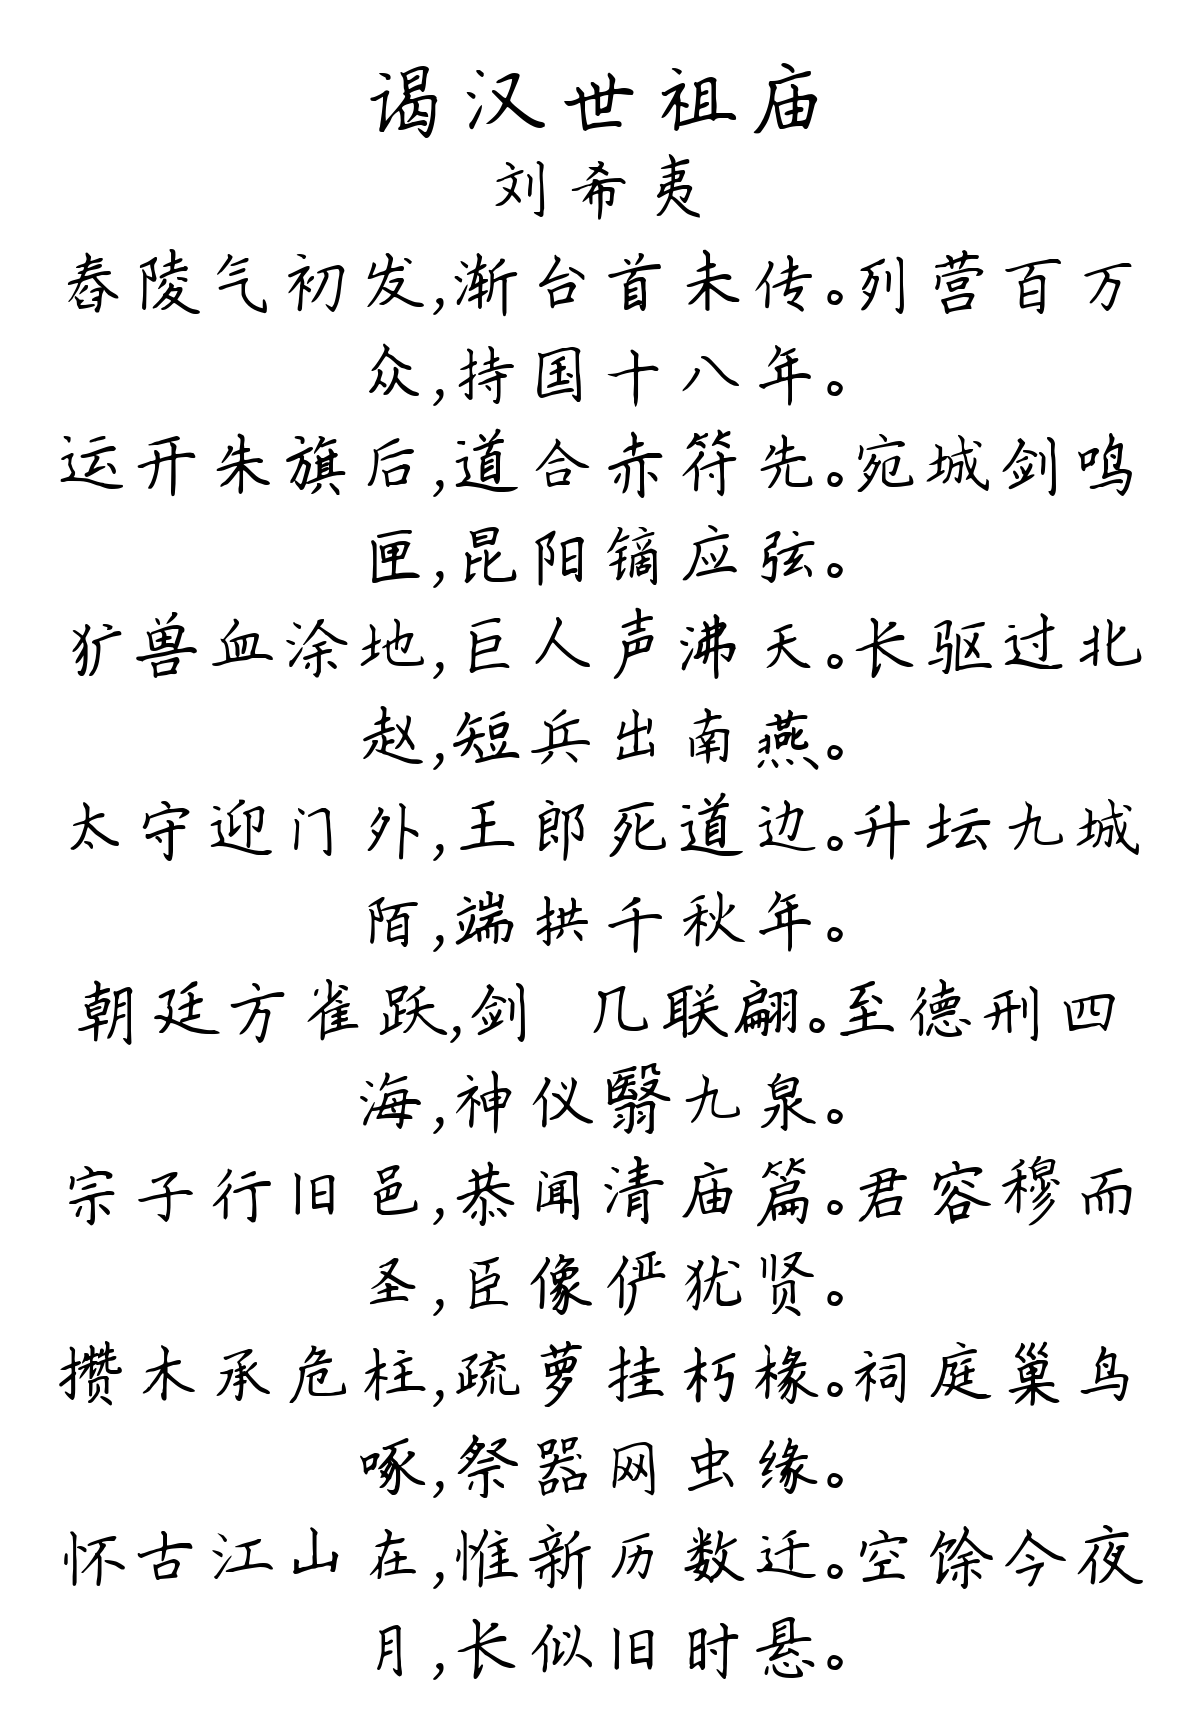 谒汉世祖庙
刘希夷
舂陵气初发,渐台首未传。列营百万
众,持国十八年。
运开朱旗后,道合赤符先。宛城剑鸣
匣,昆阳镝应弦。
犷兽血涂地,巨人声沸天。长驱过北
赵,短兵出南燕。
太守迎门外,王郎死道边。升坛九城
陌,端拱千秋年。
朝廷方雀跃,剑 几联翩。至德刑四
海,神仪翳九泉。
宗子行旧邑,恭闻清庙篇。君容穆而
圣,臣像俨犹贤。
攒木承危柱,疏萝挂朽椽。祠庭巢鸟
啄,祭器网虫缘。
怀古江山在,惟新历数迁。空馀今夜
月,长似旧时悬。